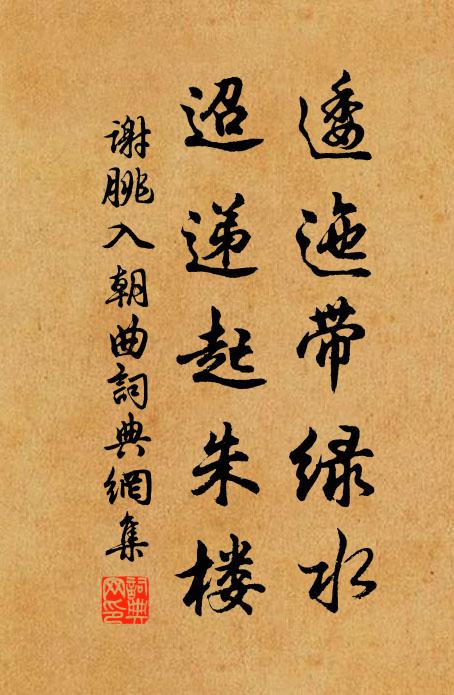 逶迤带绿水
迢递起朱楼
谢朓入朝曲詞典網集
詞典
网印